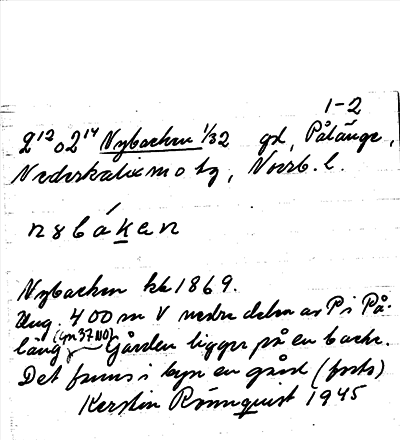 1-2
2¹² o 2¹⁴ Nybacken 1/32 gd, Pålänge,
Nederkalix m o tg, Norrb. l.
nybákən
Nybacken hk 1869.
Ung. 400 m V nedre delen av P i På-
läng (jp 37 NO). Gården ligger på en backe.
Det finns i byn en gård (forts)
Kerstin Rönnquist 1945